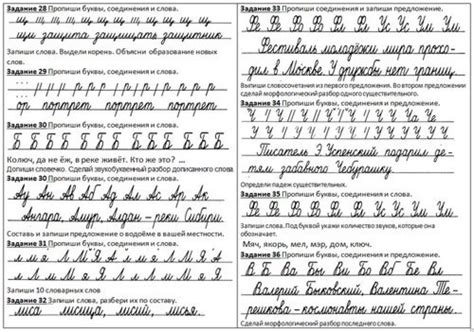 Задание 28 Пропиши буквы, соединения и слова.
щи защита защищать защитник
Запиши слова. Выдели корень. Объясни образование новых
слов.
Задание 29 Пропиши буквы, соединения и слова.
ор портрет портрет портрет
Задание 30 Пропиши буквы, соединения и слова.
Б Б Б Б Б Б Б Б Б
Колюч, да не ёж, в реке живёт. Кто же это? ...
Допиши словечко. Сделай звукобуквенный разбор дописанного слова
Задание 30 Пропиши буквы, соединения и слова.
Ау Ан Ав Ад Ал Ас Ар Ак
Ангара, Амур, Алдан – реки Сибири.
Составь и запиши предложение о водоёме в вашей местности.
Задание 31 Пропиши буквы, соединения и слова.
Запиши 10 словарных слов
Задание 32 Запиши слова, разбери их по составу.
лиса лисица, лисий, лисья.
Задание 33 Пропиши буквы, соединения и запиши предложение.
Фе Фе Во Во Ф Ф Ус Ус Ум Ум
Фестиваль молодёжи мира прохо-
дил в Москве. У дружбы нет границ.
Выпиши словосочетания из первого предложения. Во втором предложении
сделай морфологический разбор одного существительного.
Задание 34 Пропиши буквы, соединения и предложение.
Писатель Э.Успенский подарил де-
тям забавного Чебурашку.
Определи падеж существительных.
Задание 35 Пропиши буквы, соединения и слова.
Запиши слова. Под буквой укажи количество звуков, которые она
обозначает.
Мяч, якорь, мел, мэр, дом, ключ.
Задание 36 Пропиши буквы, соединения и предложение.
В Б Ва Бы Ви Бо Вб Бе Вл
Валерий Быковский, Валентина Те-
решкова – космонавты нашей страны.
Сделай морфологический разбор последнего слова.